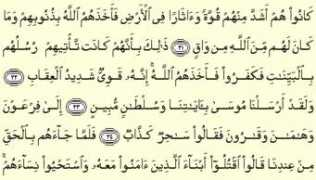 كَانُوا۟ هُمْ أَشَدَّ مِنْهُمْ قُوَّةً وَءَاثَارًا فِى ٱلْأَرْضِ فَأَخَذَهُمُ ٱللَّهُ بِذُنُوبِهِمْ وَمَا
كَانَ لَهُم مِّنَ ٱللَّهِ مِن وَاقٍ ٢١ ذَٰلِكَ بِأَنَّهُمْ كَانَت تَّأْتِيهِمْ رُسُلُهُم
بِٱلْبَيِّنَٰتِ فَكَفَرُوا۟ فَأَخَذَهُمُ ٱللَّهُ ۚ إِنَّهُۥ قَوِىٌّ شَدِيدُ ٱلْعِقَابِ ٢٢
وَلَقَدْ أَرْسَلْنَا مُوسَىٰ بِـَٔايَٰتِنَا وَسُلْطَٰنٍ مُّبِينٍ ٢٣ إِلَىٰ فِرْعَوْنَ
وَهَٰمَٰنَ وَقَٰرُونَ فَقَالُوا۟ سَٰحِرٌ كَذَّابٌ ٢٤ فَلَمَّا جَآءَهُم بِٱلْحَقِّ
مِنْ عِندِنَا قَالُوا۟ ٱقْتُلُوٓا۟ أَبْنَآءَ ٱلَّذِينَ ءَامَنُوا۟ مَعَهُۥ وَٱسْتَحْيُوا۟ نِسَآءَهُمْ ۚ